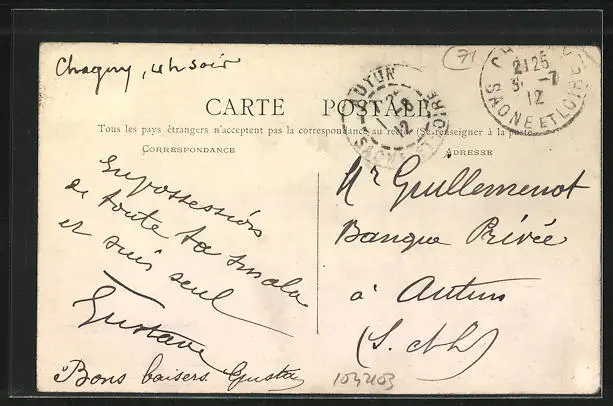 Chagny, 4h soir
71
21 25
31 -7
12
SAONE ET LOIRE
AUTUN
12
CARTE POSTALE
Tous les pays étrangers n'acceptent pas la correspondance au recto (Se renseigner à la poste
CORRESPONDANCE
ADRESSE
En possession
de toute ta smala
et suis seul
Gustave
Bons baisers. Gusta
Mr Guillemenot
Banque Privée
à Autun
(S. &